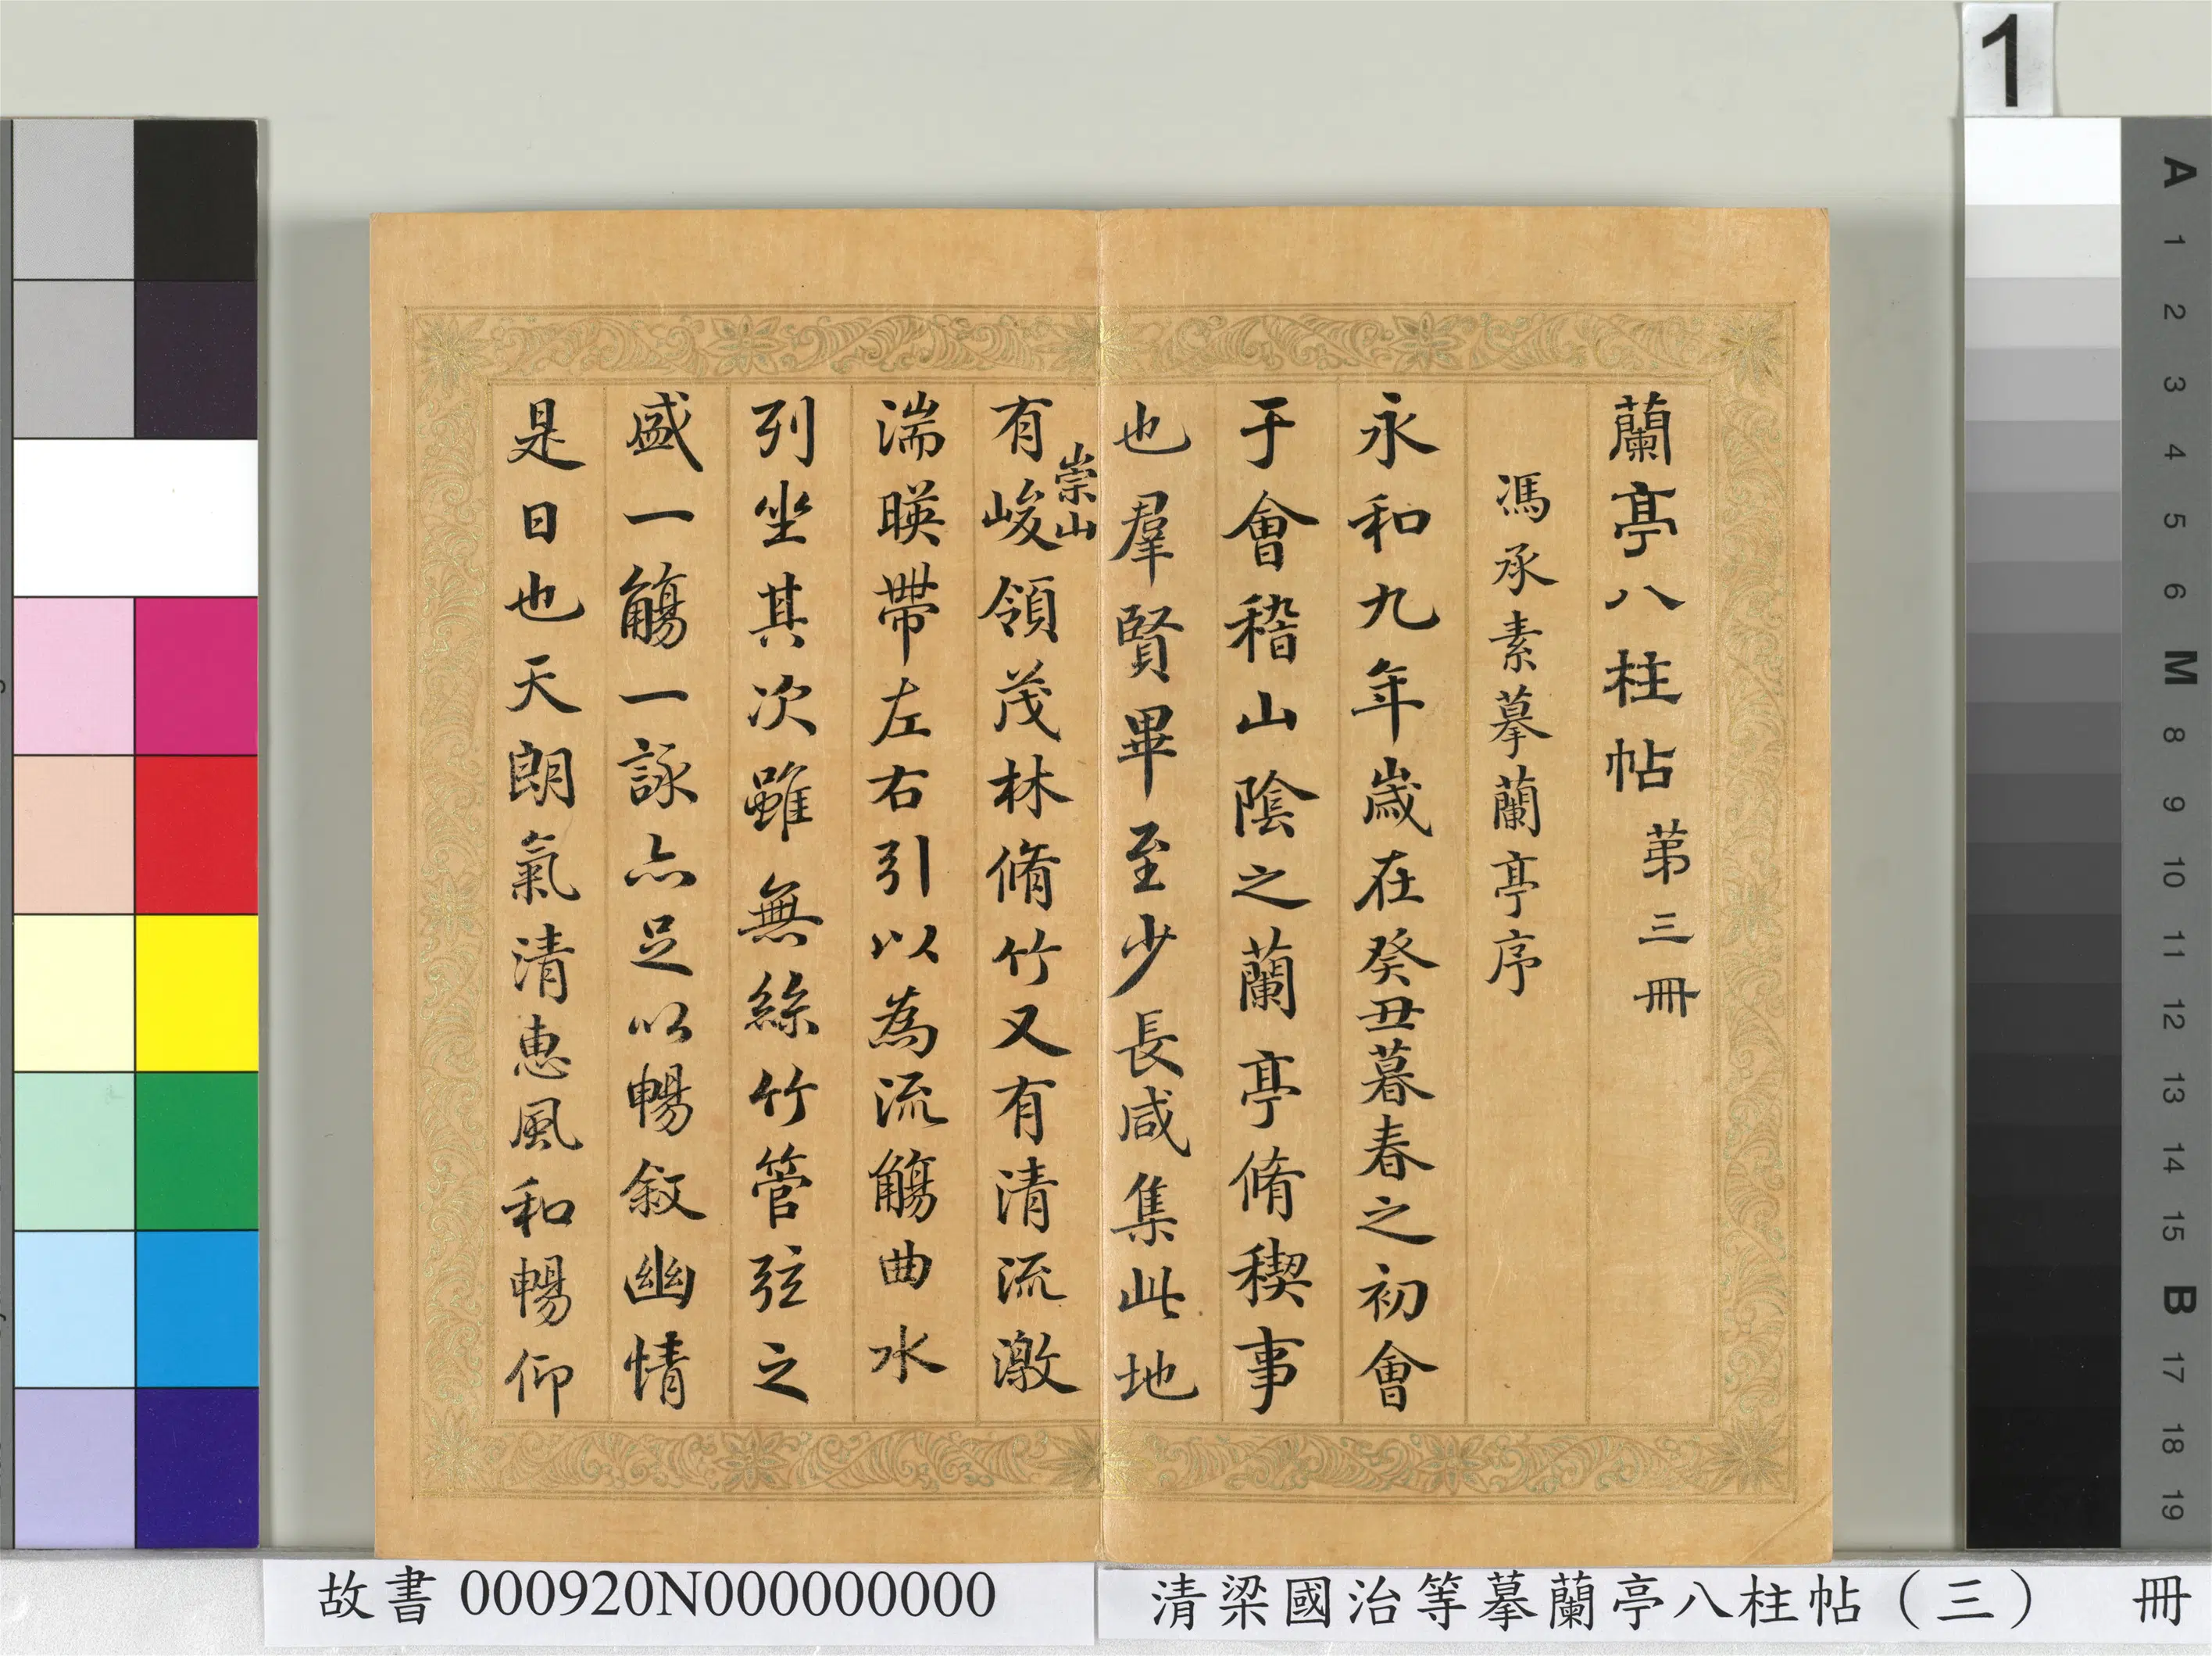 蘭亭八柱帖 第三冊
馮承素摹蘭亭序
永和九年歲在癸丑暮春之初會
于會稽山陰之蘭亭脩稧事
也羣賢畢至少長咸集此地
有崇山峻領茂林脩竹又有清流激
湍暎帶左右引以為流觴曲水
列坐其次雖無絲竹管弦之
盛一觴一詠亦足以暢敘幽情
是日也天朗氣清惠風和暢仰
故書 000920N000000000
清梁國治等摹蘭亭八柱帖（三） 冊
1
A
1
2
3
4
5
6
M
8
9
10
11
12
13
14
15
B
17
18
19